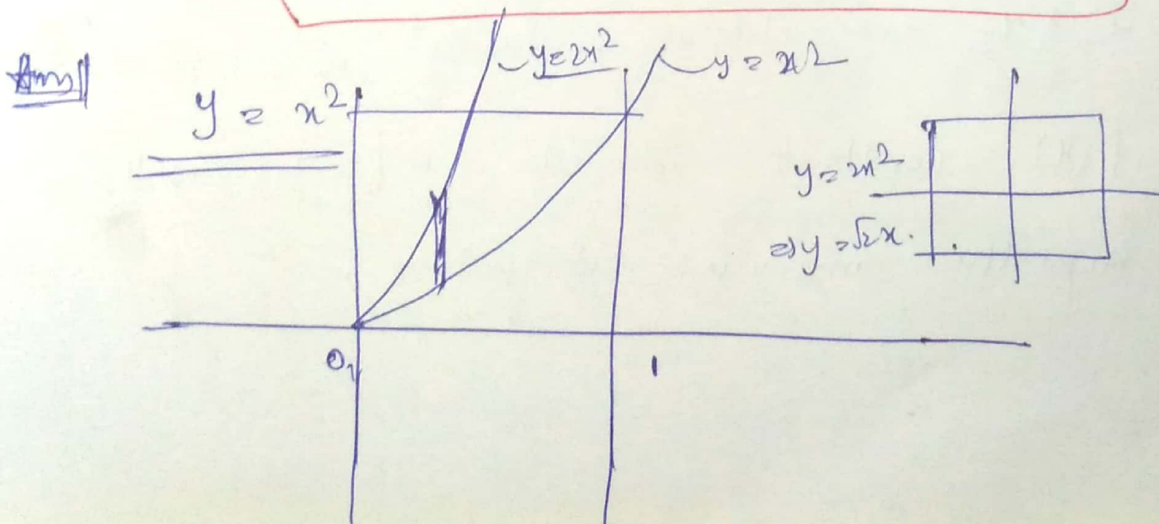 Ans
y = x²
y=2x²
y = x²
y=2x²
⇒y=√2x.
0,
1